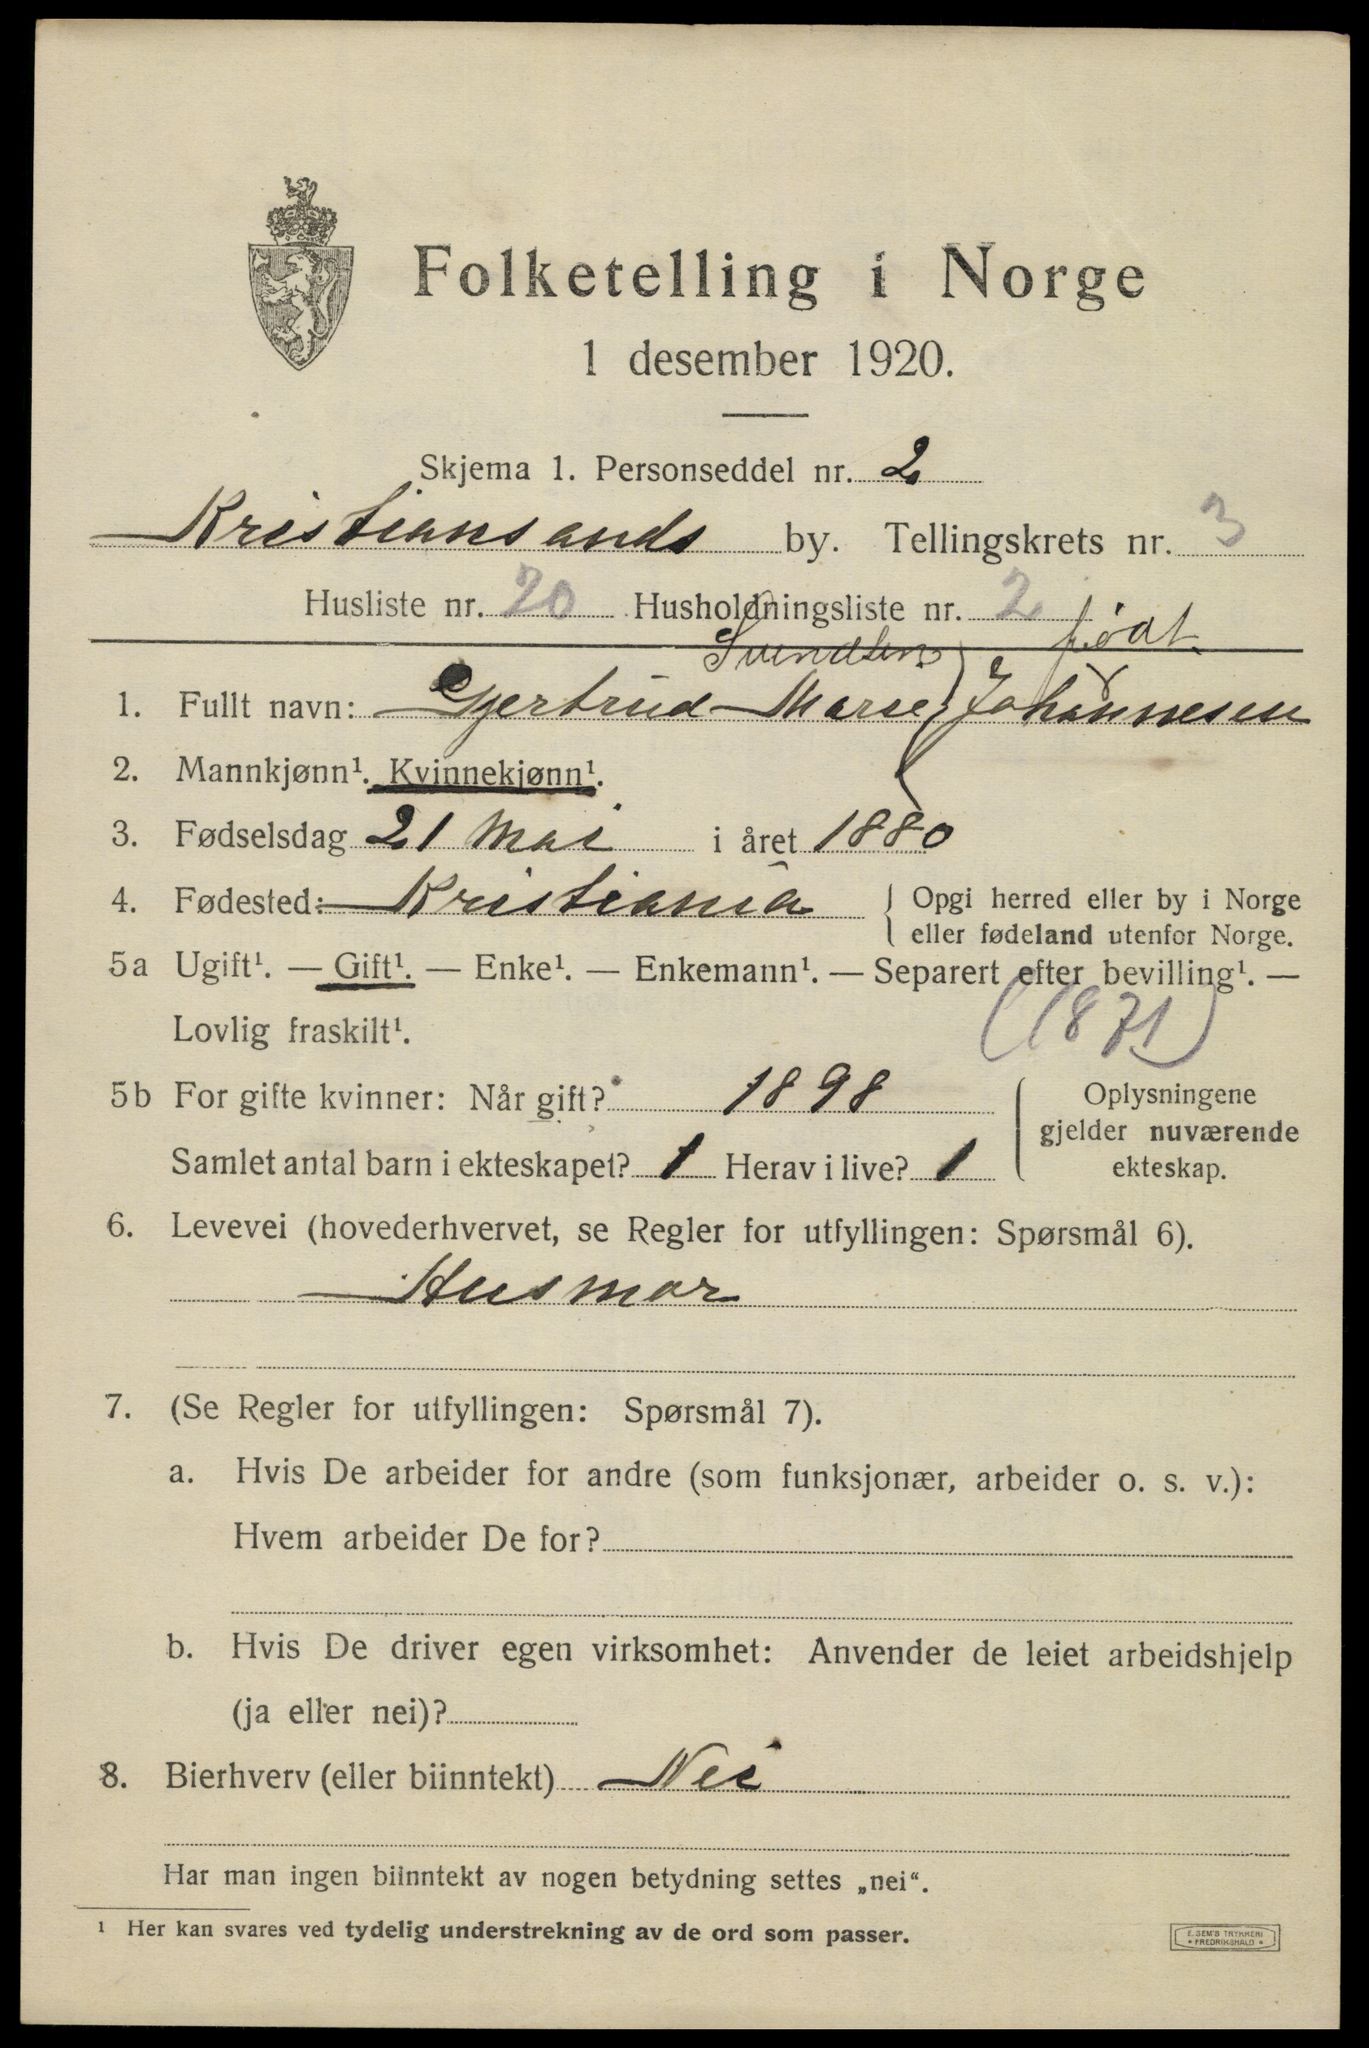 Folketelling i Norge
1 desember 1920.
Skjema 1. Personseddel nr. 2
Kristiansands by. Tellingskrets nr. 3
Husliste nr. 20 Husholdningsliste nr. 2
Svendsen født
1. Fullt navn: Gjertrud Marie Johannesen
2. Mannkjønn¹. Kvinnekjønn¹.
3. Fødselsdag 21 Mai i året 1880
4. Fødested: Kristiania { Opgi herred eller by i Norge
eller fødeland utenfor Norge.
5a Ugift¹. — Gift¹. — Enke¹. — Enkemann¹. — Separert efter bevilling¹. —
Lovlig fraskilt¹. (1871)
5b For gifte kvinner: Når gift? 1898 Oplysningene
gjelder nuværende
Samlet antal barn i ekteskapet? 1 Herav i live? 1 ekteskap.
6. Levevei (hovederhvervet, se Regler for utfyllingen: Spørsmål 6).
Husmor
7. (Se Regler for utfyllingen: Spørsmål 7).
a. Hvis De arbeider for andre (som funksjonær, arbeider o. s. v.):
Hvem arbeider De for?
b. Hvis De driver egen virksomhet: Anvender de leiet arbeidshjelp
(ja eller nei)?
8. Bierhverv (eller biinntekt) Nei
Har man ingen biinntekt av nogen betydning settes „nei".
¹ Her kan svares ved tydelig understrekning av de ord som passer.
E. SEM'S TRYKKERI
FREDRIKSHALD